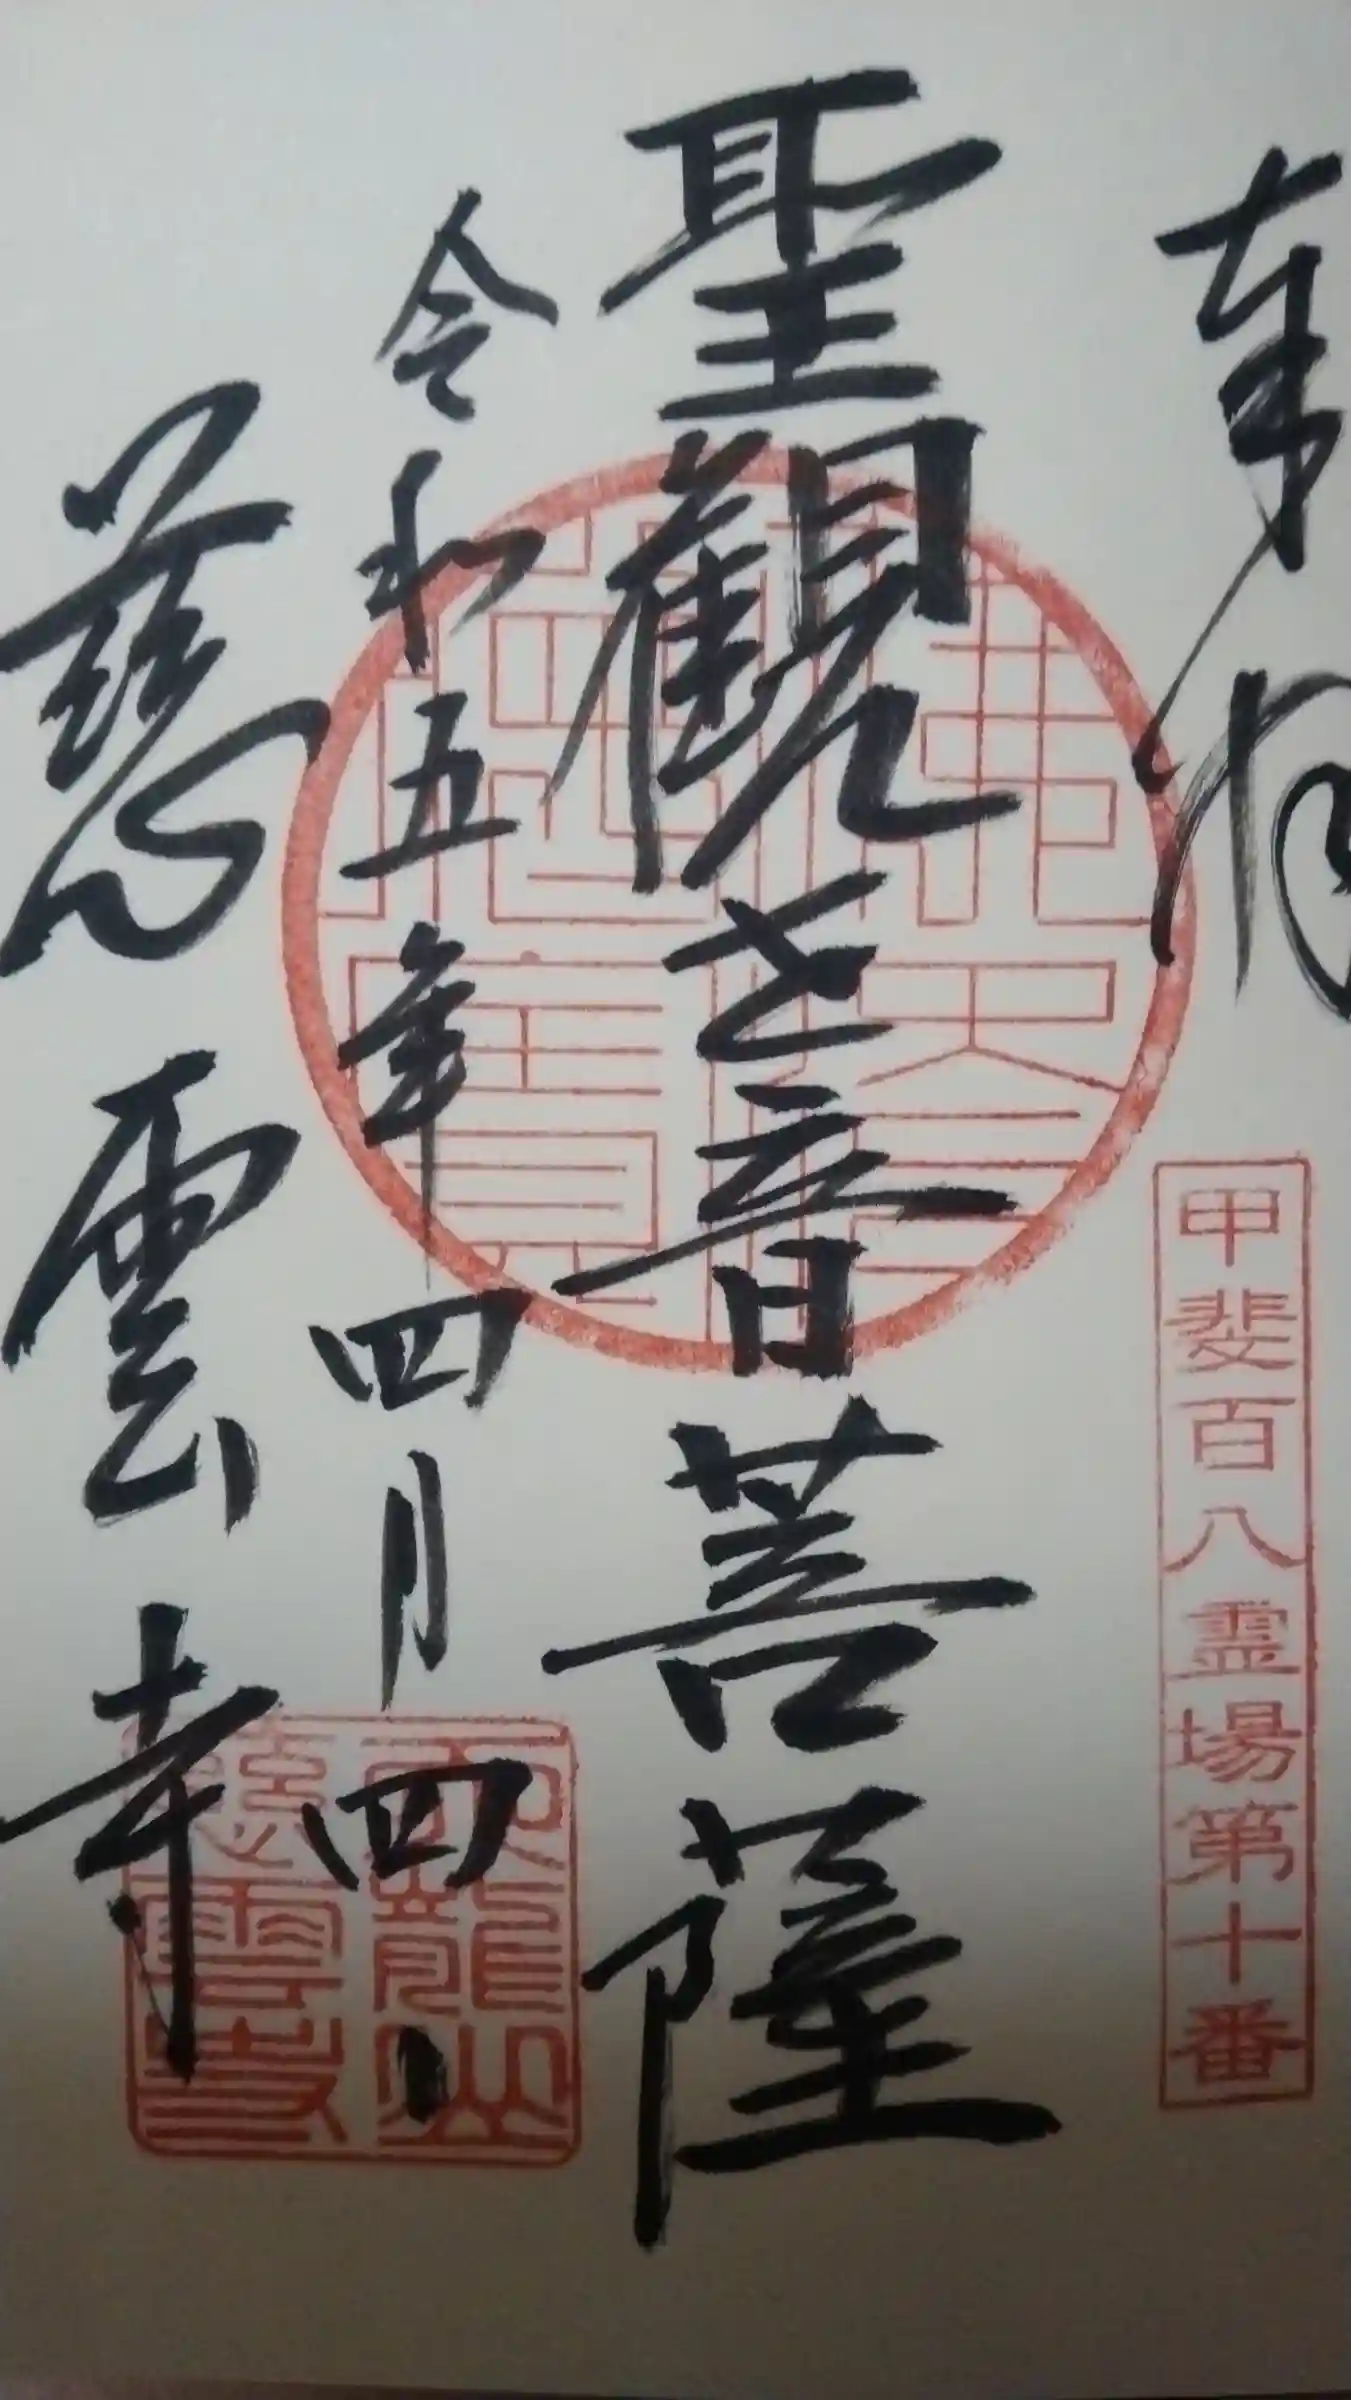 奉拝
甲斐百八霊場第十番
聖観世音菩薩
令和五年四月四日
慈雲寺
天龍山
慈雲寺